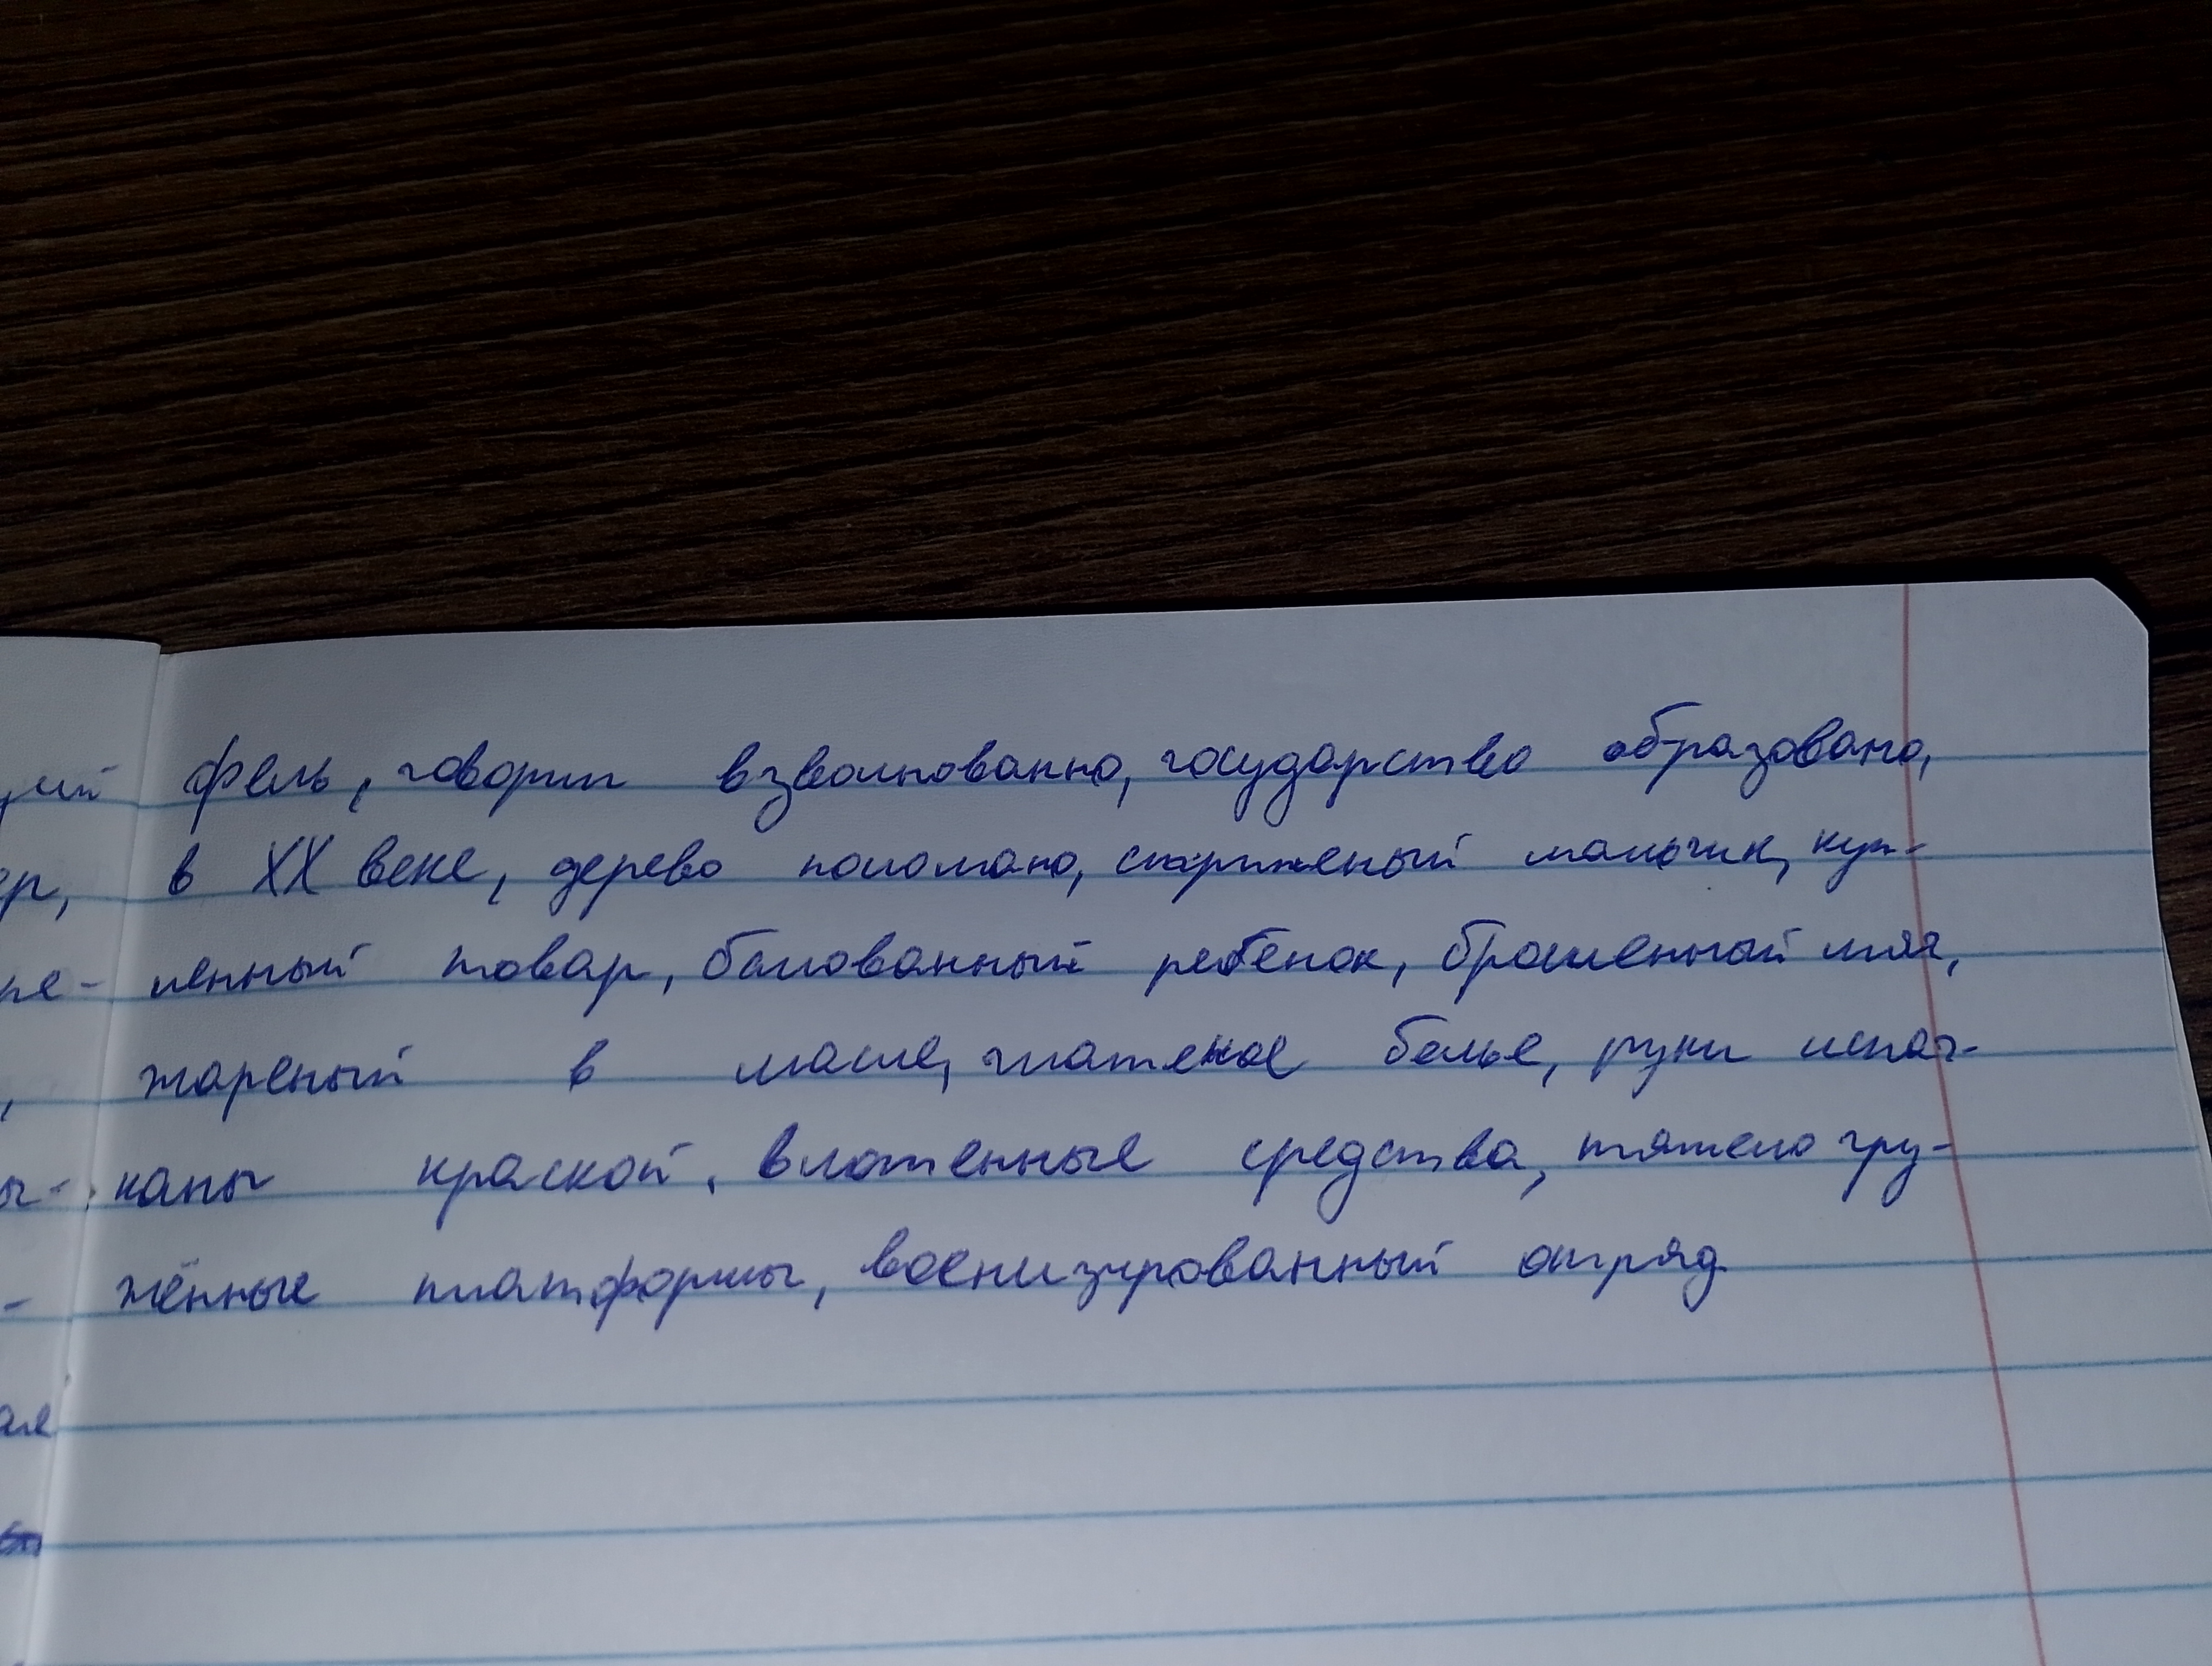 фель, говорит взволнованно, государство образовано,
в XX веке, дерево поломано, скрюченый мальчик, куп-
ленный товар, балованный ребёнок, брошенный мяч,
жареный в масле, глаженое белье, руки испач-
каны краской, вложенные средства, тяжело гру-
жённые платформы, военизированный отряд